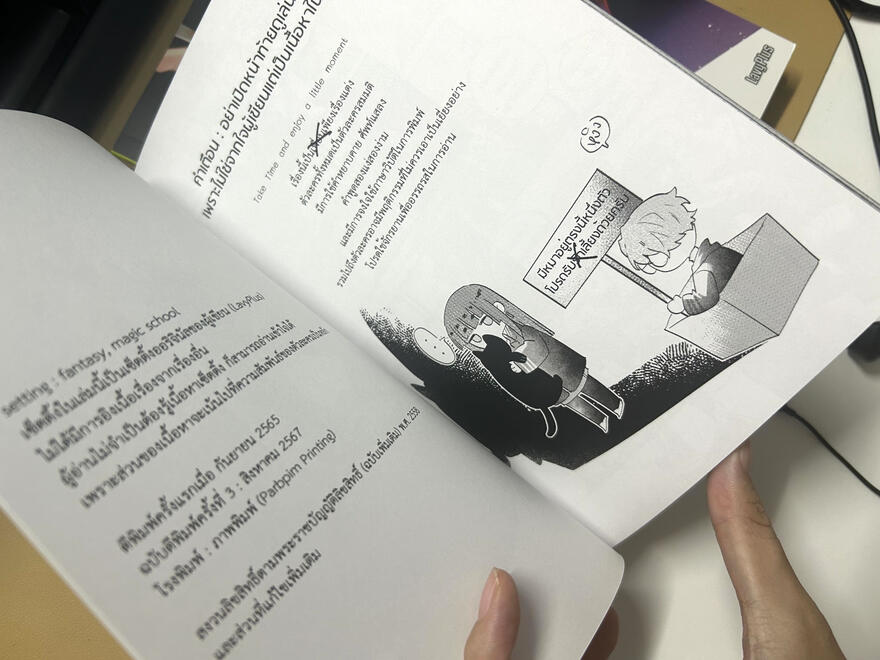 setting : fantasy, magic school
เซ็ตติ้งในเล่มนี้เป็นเซ็ตติ้งออริจินัลของผู้เขียน (LavyPlus)
ไม่ได้มีการอิงเนื้อเรื่องจากเรื่องอื่น
ผู้อ่านไม่จำเป็นต้องรู้เนื้อหาเซ็ตติ้ง ก็สามารถอ่านเข้าใจได้
เพราะส่วนของเนื้อหาจะเน้นไปที่ความสัมพันธ์ของตัวละครเป็นหลัก
ตีพิมพ์ครั้งแรกเมื่อ กันยายน 2565
ฉบับตีพิมพ์ครั้งที่ 3 : สิงหาคม 2567
โรงพิมพ์ : ภาพพิมพ์ (Parbpim Printing)
สงวนลิขสิทธิ์ตามพระราชบัญญัติลิขสิทธิ์ (ฉบับเพิ่มเติม) พ.ศ. 2558
และส่วนที่แก้ไขเพิ่มเติม
คำเตือน : อย่าเปิดหน้าท้ายดูเล่น
เพราะไม่ใช่จากใจผู้เขียนแต่เป็นเนื้อหาใน
Take Time and enjoy a little moment
เรื่องนี้เป็นเพียงเรื่องแต่ง
ตัวละครทั้งหมดเป็นตัวละครสมมติ
มีการใช้คำหยาบคาย ศัพท์แสลง
คำพูดสองแง่สองง่าม
และมีการจงใจใช้ภาษาวิบัติในการพิมพ์
รวมไปถึงตัวละครอาจมีพฤติกรรมที่ไม่ควรเอาเป็นเยี่ยงอย่าง
โปรดใช้จักรยานเพื่ออรรถรสในการอ่าน
มีหมาอยู่ตรงนี้หนึ่งตัว
โปรดรับเลี้ยงด้วยครับ
LavyPlus